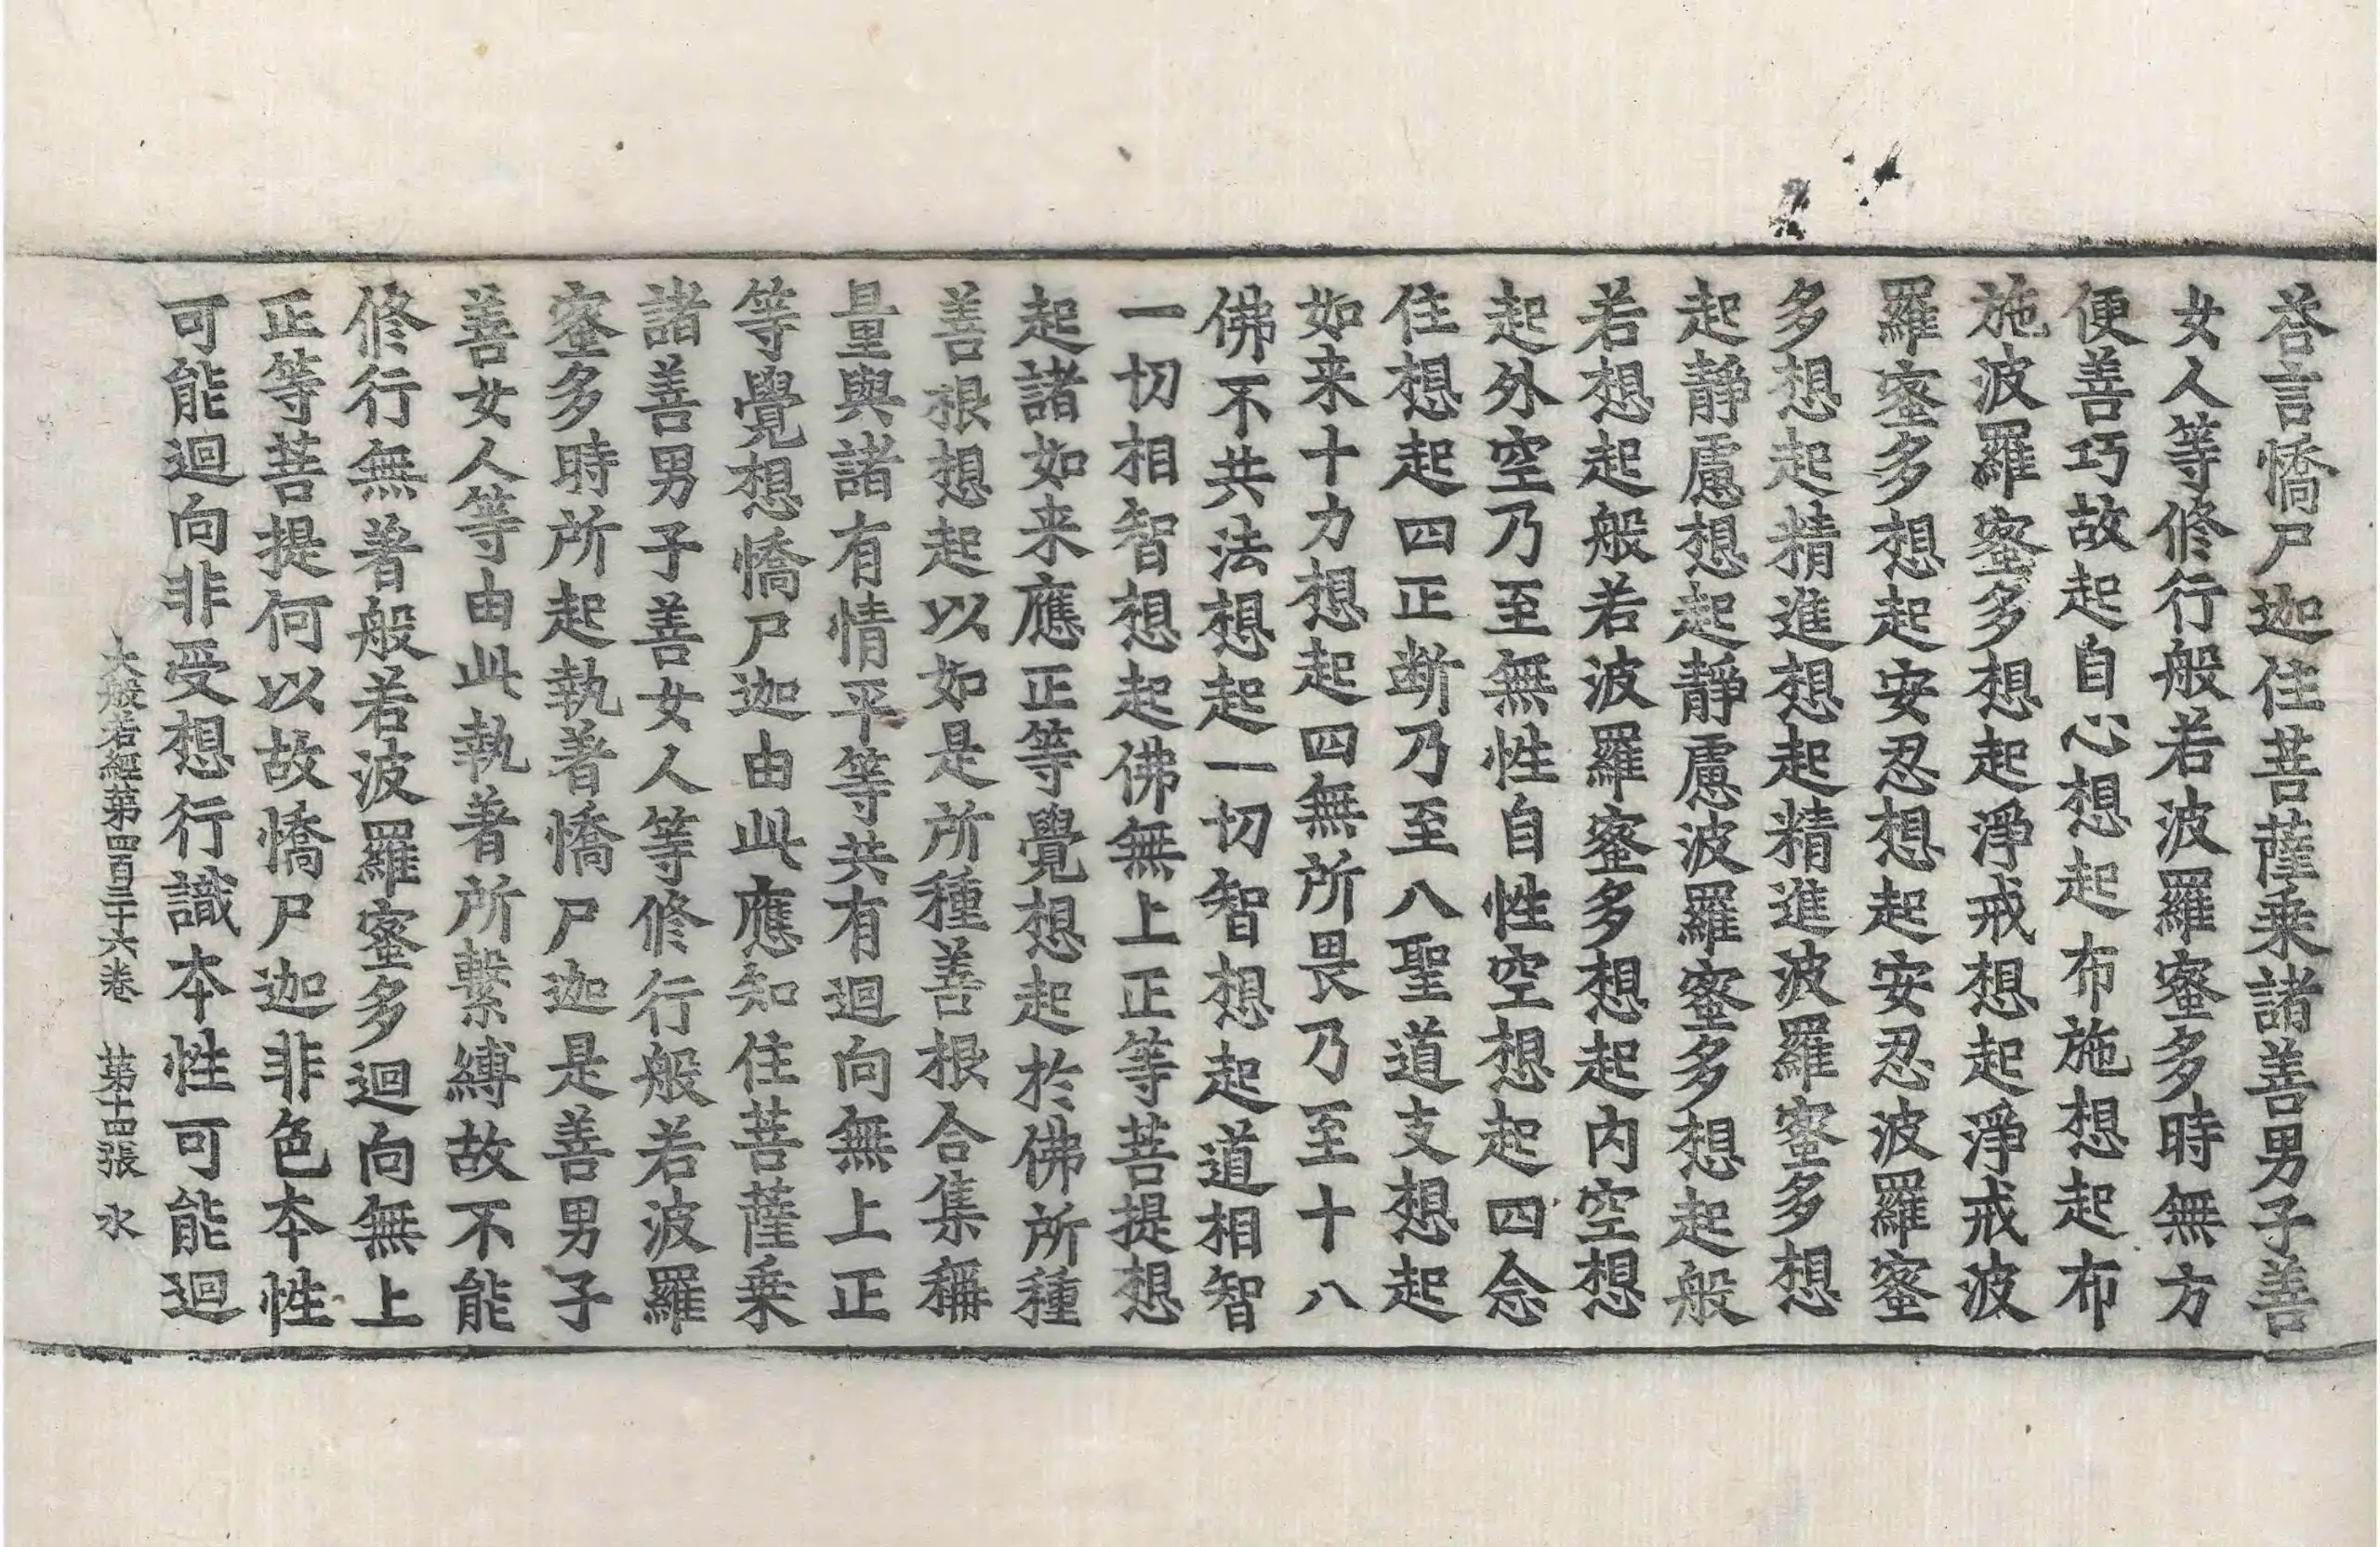 荅言憍尸迦住菩薩乗諸善男子善
女人等修行般若波羅蜜多時無方
便善巧故起自心想起布施想起布
施波羅蜜多想起淨戒想起淨戒波
羅蜜多想起安忍想起安忍波羅蜜
多想起精進想起精進波羅蜜多想
起靜慮想起靜慮波羅蜜多想起般
若想起般若波羅蜜多想起内空想
起外空乃至無性自性空想起四念
住想起四正断乃至八聖道支想起
如来十力想起四無所畏乃至十八
佛不共法想起一切智想起道相智
一切相智想起佛無上正等菩提想
起諸如来應正等覺想起於佛所種
善根想起以如是所種善根合集稱
量與諸有情平等共有迴向無上正
等覺想憍尸迦由此應知住菩薩乗
諸善男子善女人等修行般若波羅
蜜多時所起執著憍尸迦是善男子
善女人等由此執著所繫縛故不能
修行無著般若波羅蜜多迴向無上
正等菩提何以故憍尸迦非色本性
可能迴向非受想行識本性可能迴
大般若經第四百三十六卷　第十四張　水